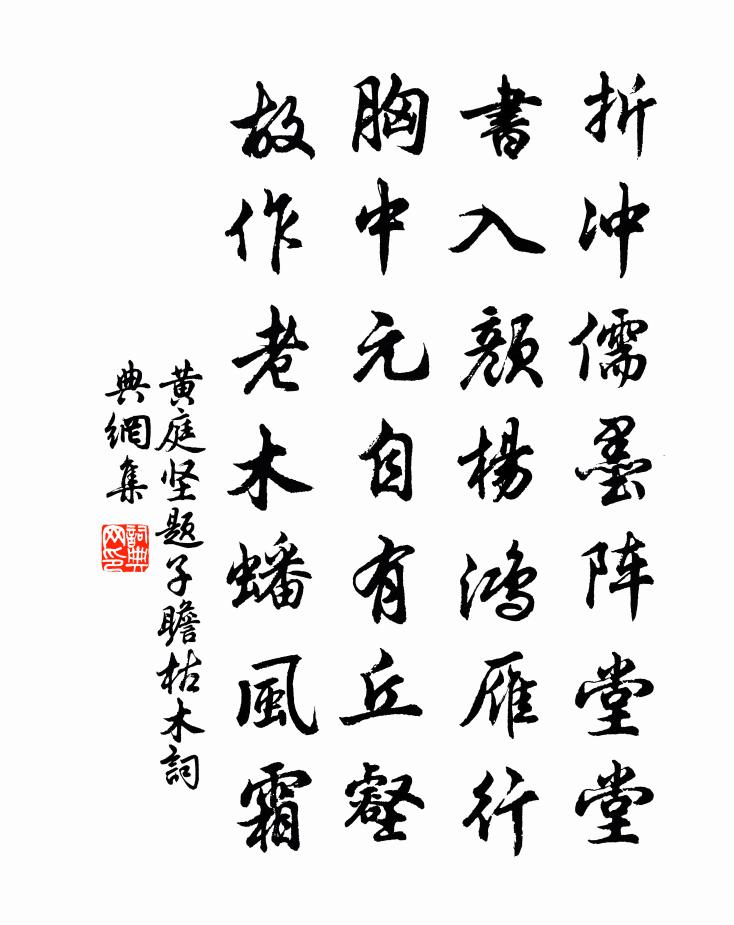 折冲儒墨阵堂堂
書入颜楊鸿雁行
胸中元自有丘壑
故作老木蟠風霜
黄庭坚题子瞻枯木詞
典網集
詞典
网印